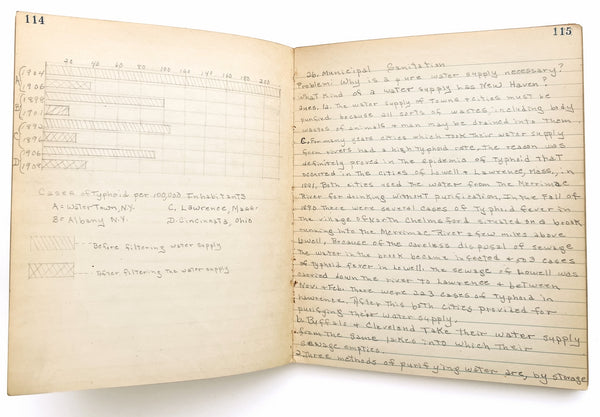 114
20 40 60 80 100 120 140 160 180 200
A
1904
1906
B
1899
1901
C
1892
1896
D
1906
1908
Cases of Typhoid per 100,000 Inhabitants
A = WaterTown, N.Y. C, Lawrence, Mass.
B = Albany N.Y. D. Cincinnati, Ohio
Before filtering water supply
after filtering the water supply
115
26. Municipal Sanitation
Problem: Why is a pure water supply necessary?
What kind of a water supply has New Haven?
Ques. 1a. The water supply of towns & cities must be
purified because all sorts of wastes including body
wastes of animals & man may be drained into them.
C. For many years cities which took their water supply
from rivers had a high typhoid rate, the reason was
definitely proved in the epidemic of typhoid that
occurred in the cities of Lowell & Lawrence, Mass., in
1891. Both cities used the water from the Merrimac
River for drinking without purification. In the Fall of
1890. There were several cases of Typhoid fever in
the village of North Chelmsford situated on a brook
running into the Merrimac River a few miles above
Lowell. Because of the careless disposal of sewage
the water in the brook became infected & 550 cases
of typhoid fever in Lowell. The sewage of Lowell was
carried down the river to Lawrence & between
Nov. & Feb. there were 223 cases of typhoid in
Lawrence. After this both cities provided for
purifying their water supply.
b. Buffalo & Cleveland Take their water supply
from the same lakes into which their
sewage empties.
2. Three methods of purifying water are, by storage